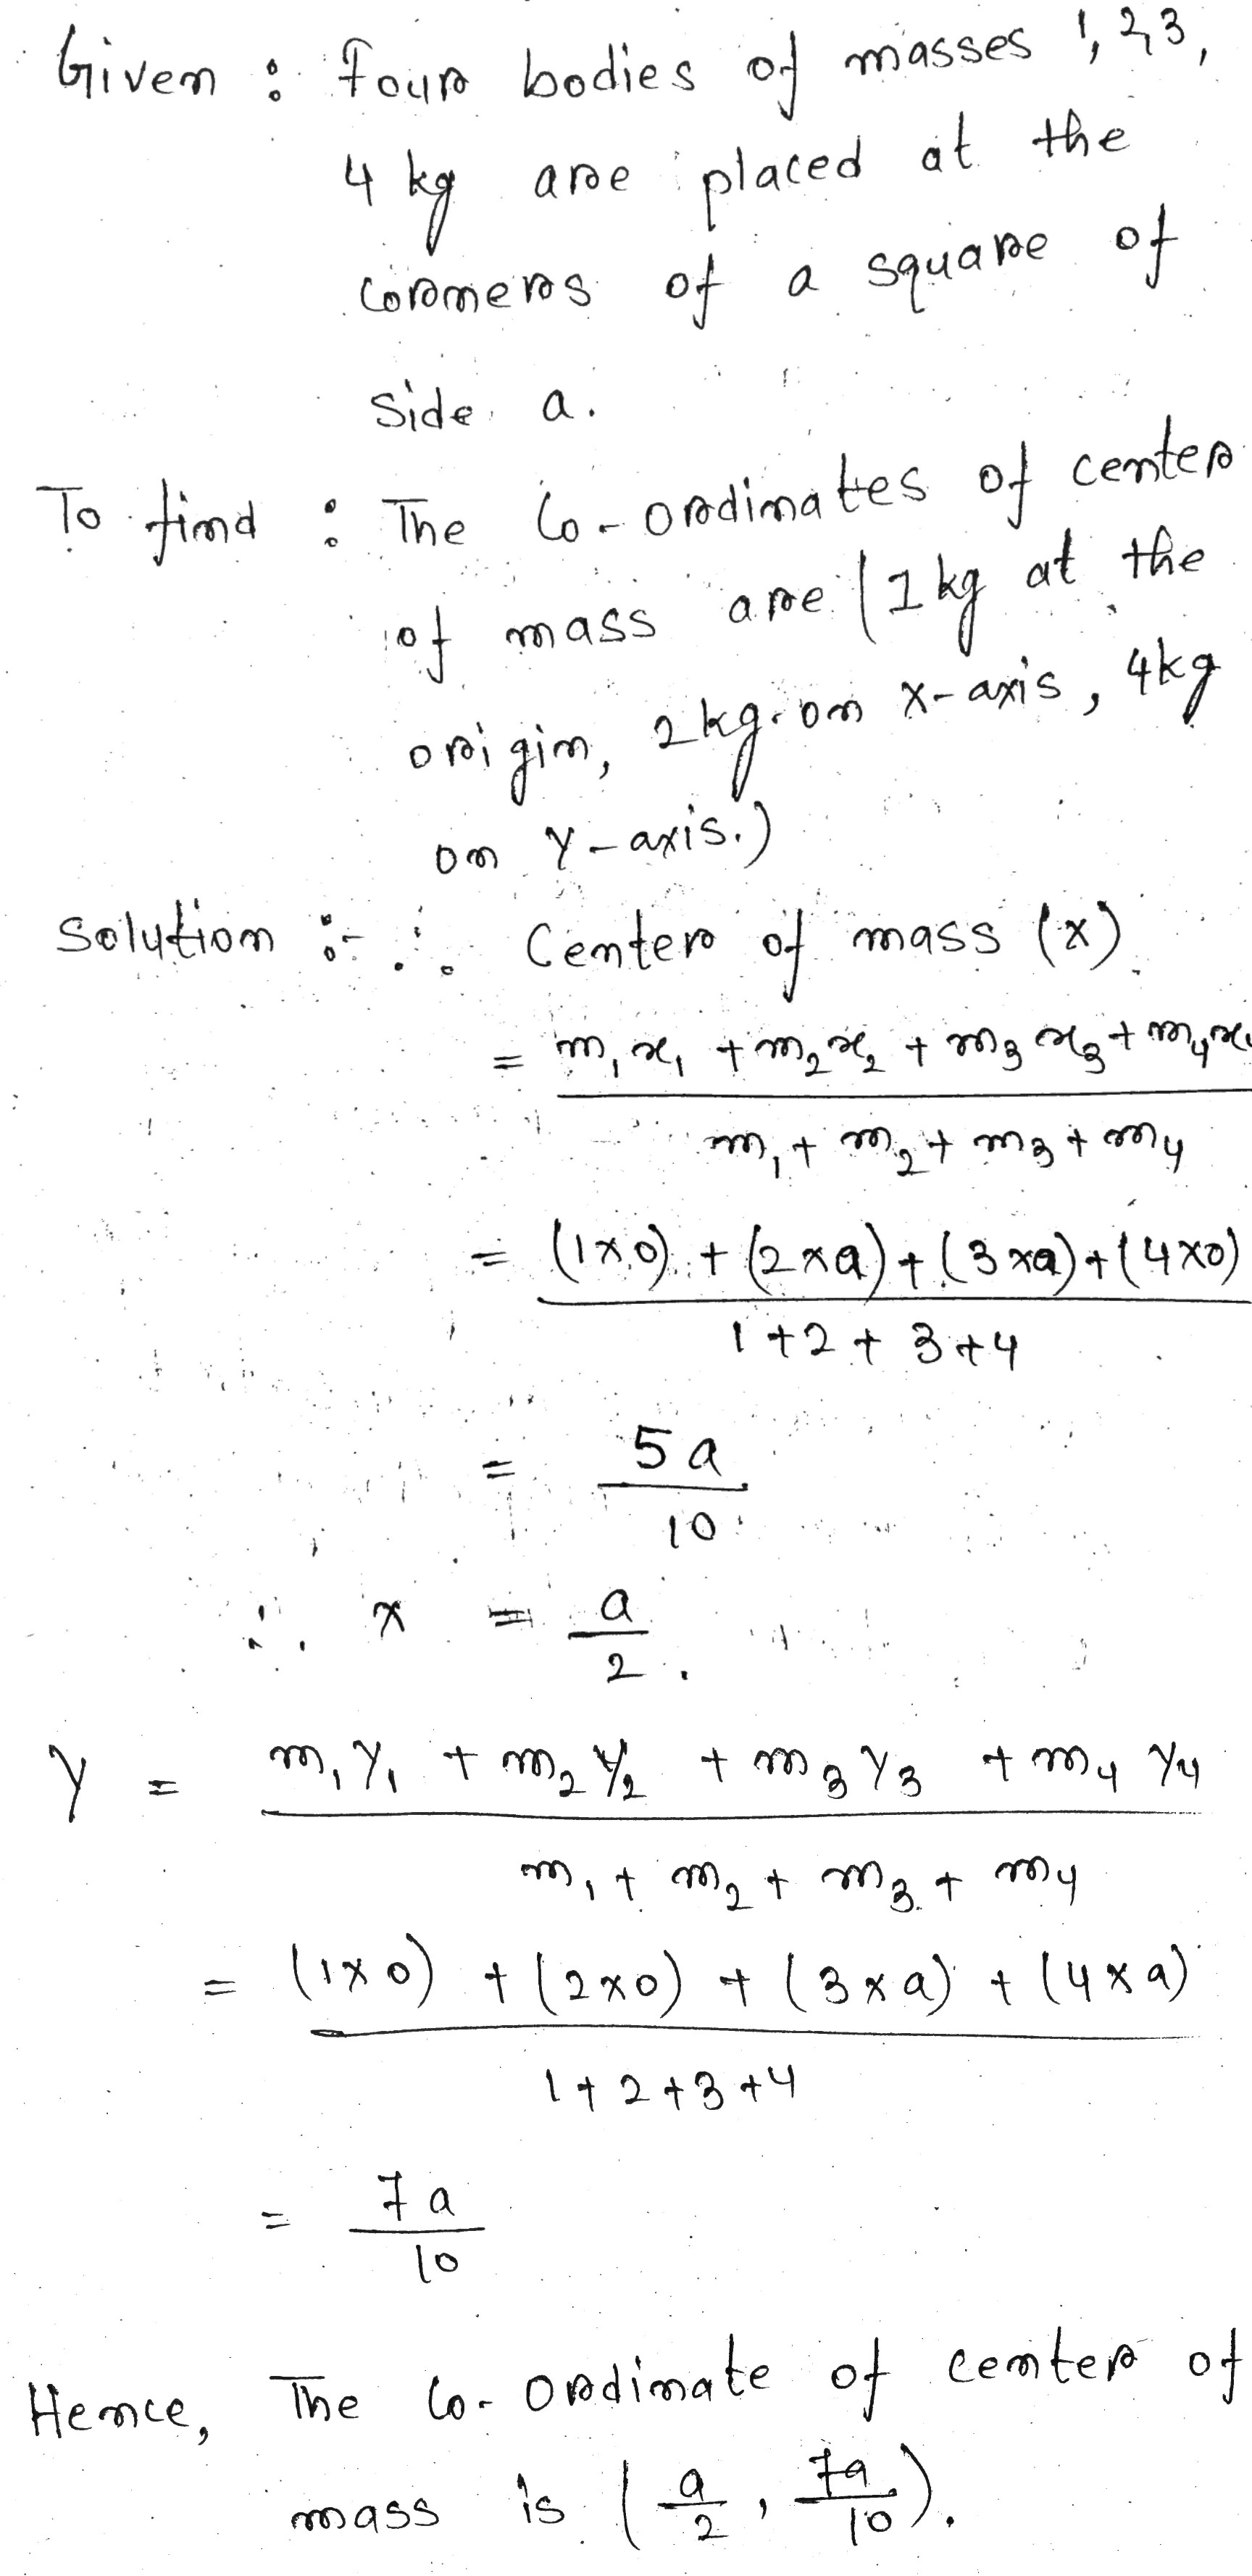 Given : four bodies of masses 1, 2, 3,
4 kg are placed at the
corners of a square of
side a.
To find : The Co-ordinates of center
of mass are (1 kg at the
origin, 2 kg on x-axis, 4kg
on y-axis.)
Solution :- ∴ Center of mass (x)
= m₁x₁ + m₂x₂ + m₃x₃ + m₄x₄
m₁ + m₂ + m₃ + m₄
= (1×0) + (2×a) + (3×a) + (4×0)
1+2+3+4
= 5a
10
∴ x = a
2.
Y = m₁y₁ + m₂y₂ + m₃y₃ + m₄y₄
m₁ + m₂ + m₃ + m₄
= (1×0) + (2×0) + (3×a) + (4×a)
1+2+3+4
= 7a
10
Hence, The Co-ordinate of center of
mass is (a/2, 7a/10).